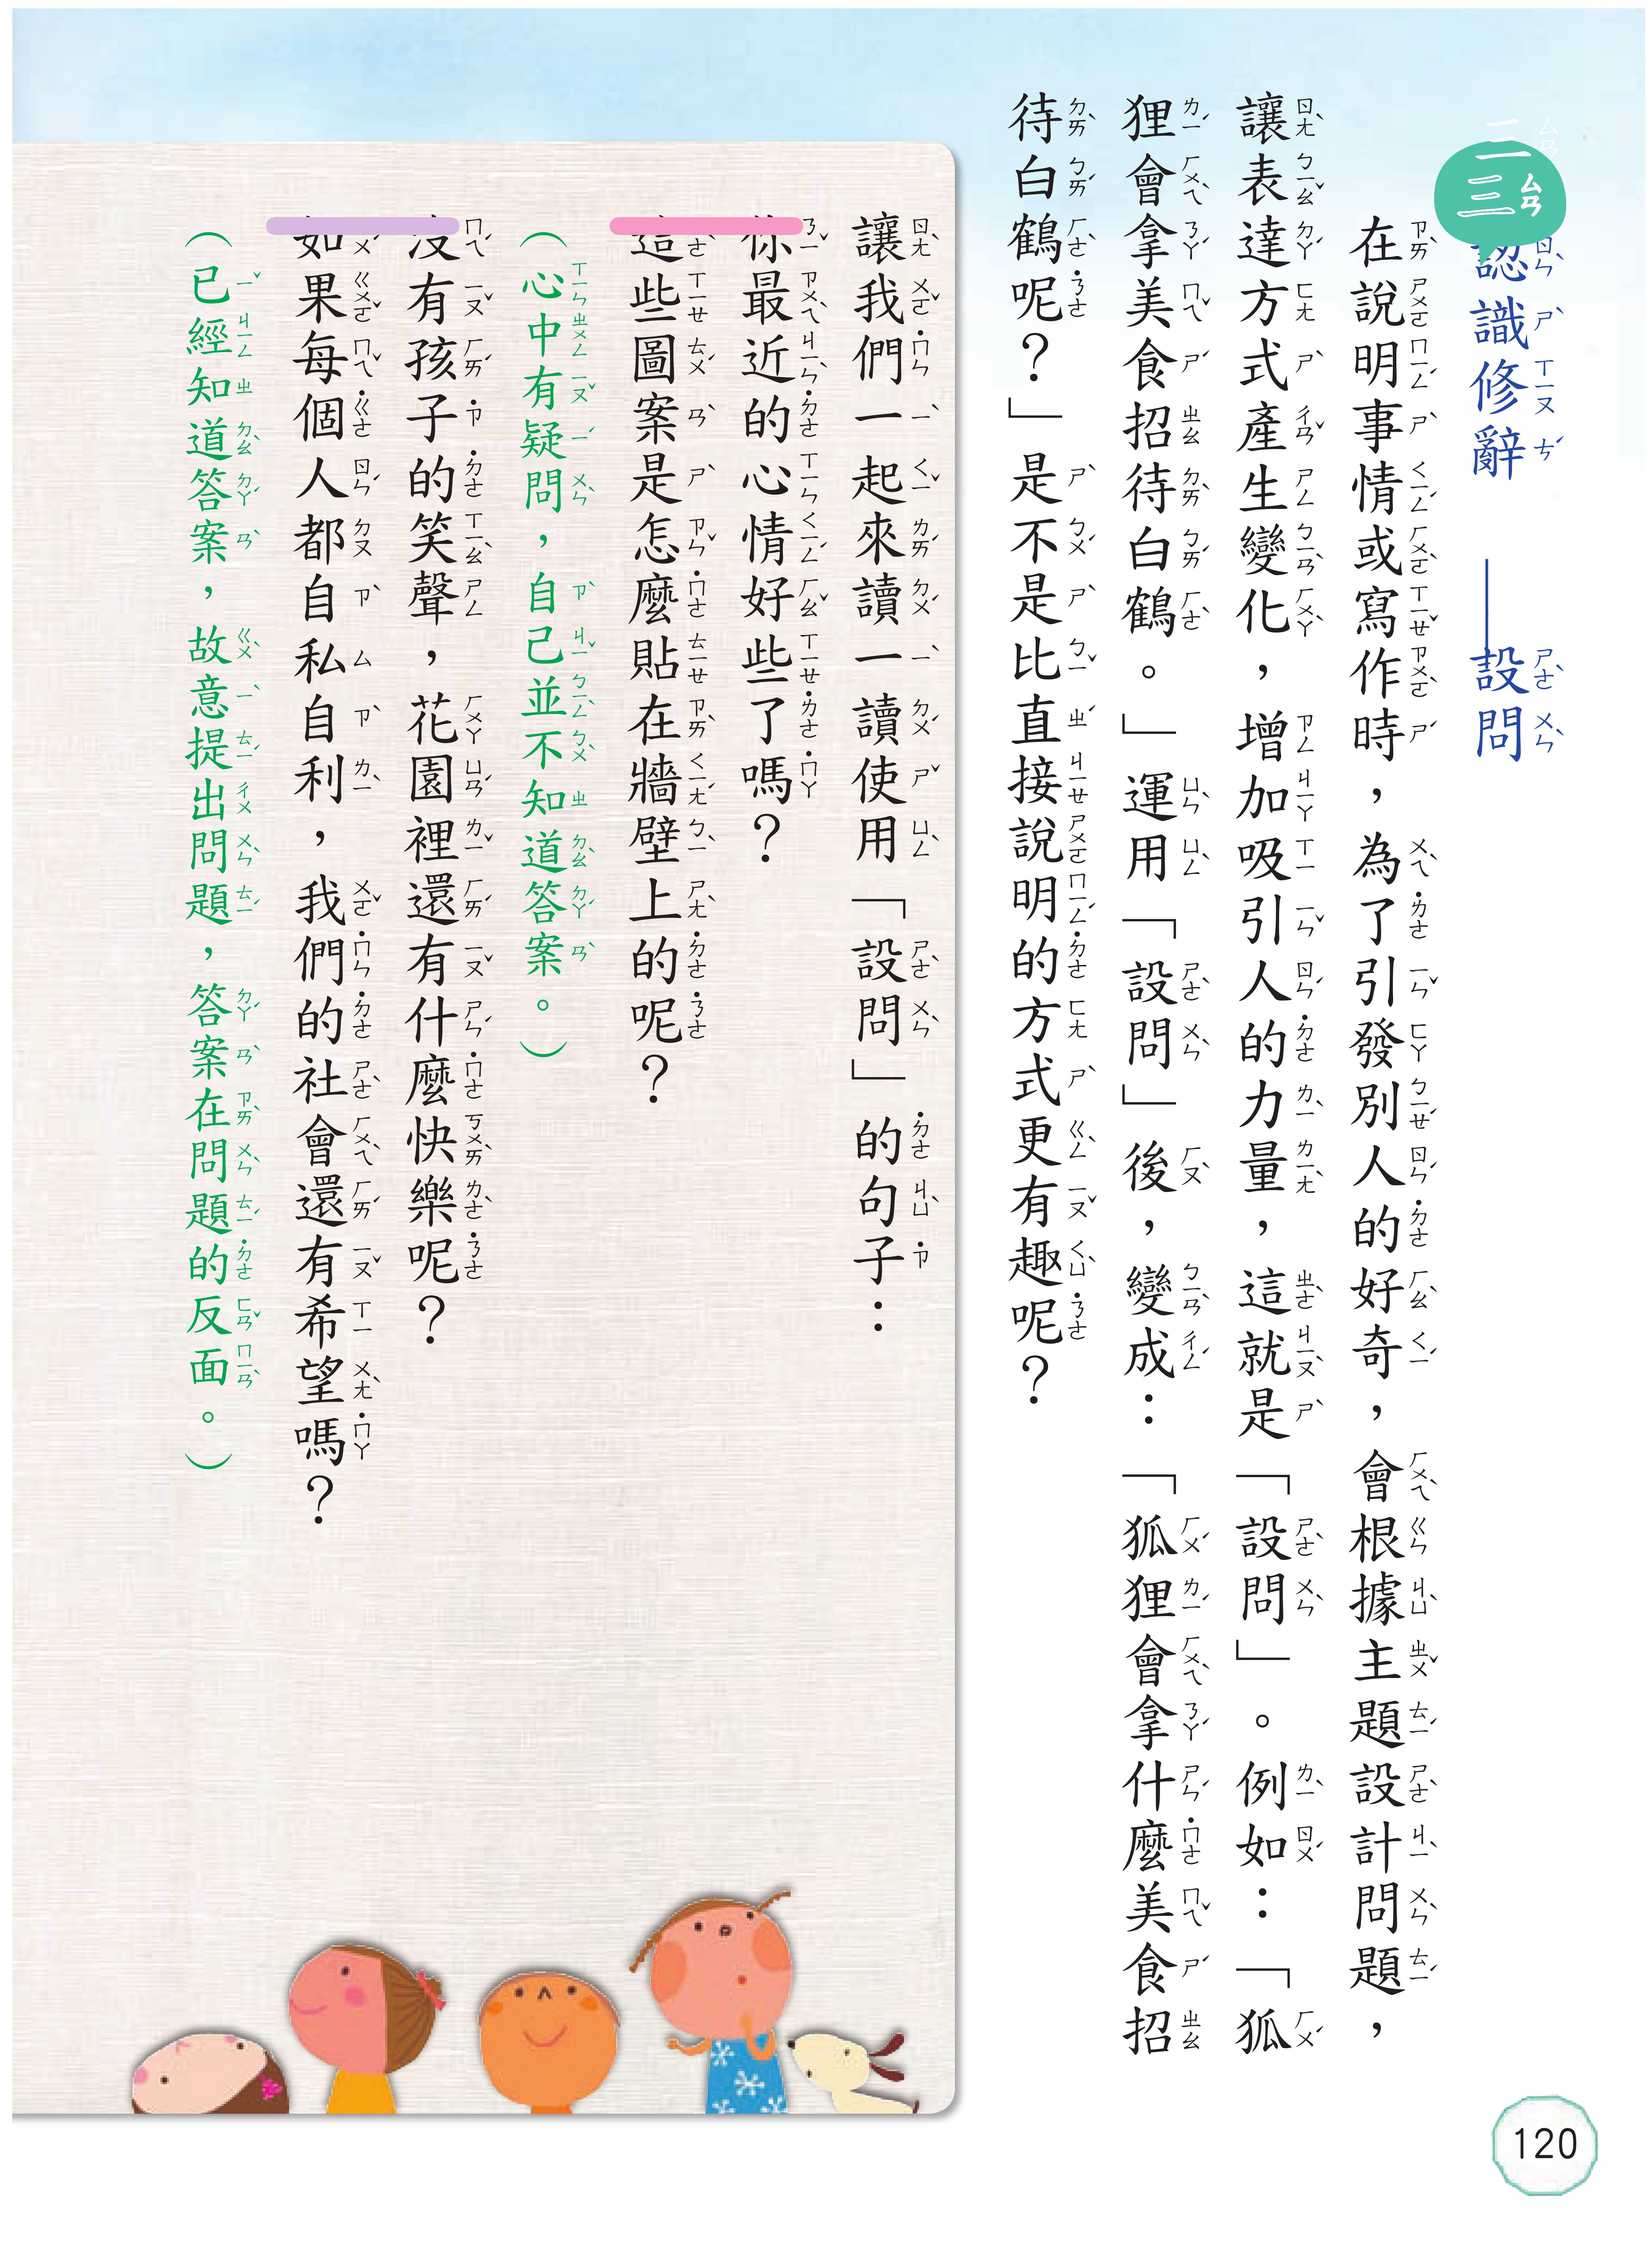 三
認識修辭——設問
在說明事情或寫作時，為了引發別人的好奇，會根據主題設計問題，
讓表達方式產生變化，增加吸引人的力量，這就是「設問」。例如：「狐
狸會拿美食招待白鶴。」運用「設問」後，變成：「狐狸會拿什麼美食招
待白鶴呢？」是不是比直接說明的方式更有趣呢？
讓我們一起來讀一讀使用「設問」的句子：
你最近的心情好些了嗎？
這些圖案是怎麼貼在牆壁上的呢？
（心中有疑問，自己並不知道答案。）
沒有孩子的笑聲，花園裡還有什麼快樂呢？
如果每個人都自私自利，我們的社會還有希望嗎？
（已經知道答案，故意提出問題，答案在問題的反面。）
120